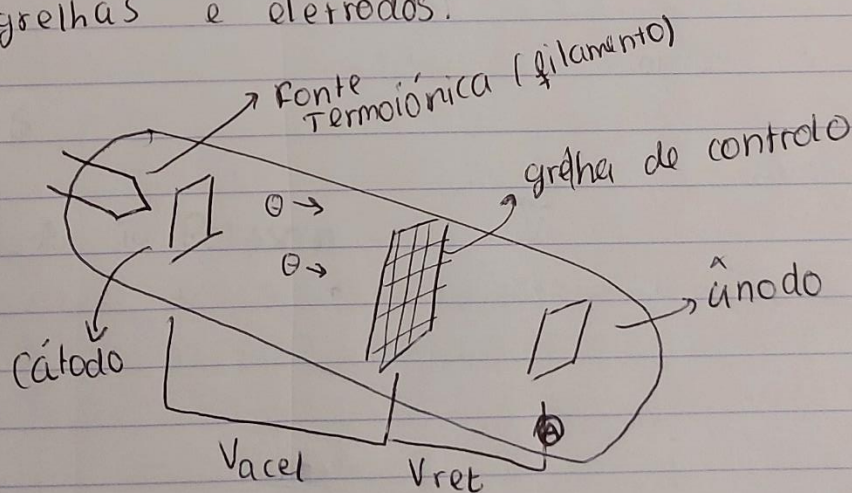 grelhas e eletrodos.
Fonte
Termoiónica (filamento)
grelha de controlo
ânodo
Cátodo
Vacel
Vret
A